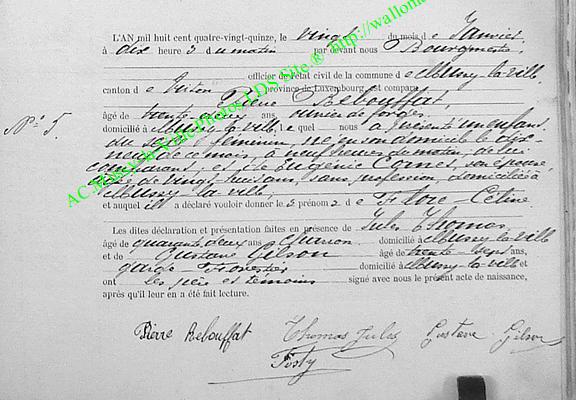 L'AN mil huit cent quatre-vingt-quinze, le vingt du mois de Janvier
à dix heures du matin par devant nous Bourgmestre,
officier de l'état civil de la commune de Mussy-la-ville
canton de Virton province de Luxembourg, est comparu
Pierre Rebouffat,
N° 5. âgé de trente deux ans, ouvrier de forges
domicilié à Mussy-la-ville, lequel nous a présenté un enfant
du sexe féminin, né en son domicile le dix-
neuf de ce mois, à neuf heures du matin, de lui
comparant, et de Eugénie Cornet, son épouse
âgée de vingt huit ans, sans profession, domiciliée à
Mussy la ville,
et auquel il a déclaré vouloir donner les prénoms de Flore-Céline
Les dites déclaration et présentation faites en présence de Jules Thomas
âgé de quarante deux ans, charron domicilié à Mussy-la-ville
et de Gustave Gilson âgé de trente-sept ans,
garde-Forestier domicilié à Mussy-la-ville et
ont les père et témoins signé avec nous le présent acte de naissance,
après qu'il leur en a été fait lecture.
Pierre Rebouffat Thomas Jules Gustave Gilson